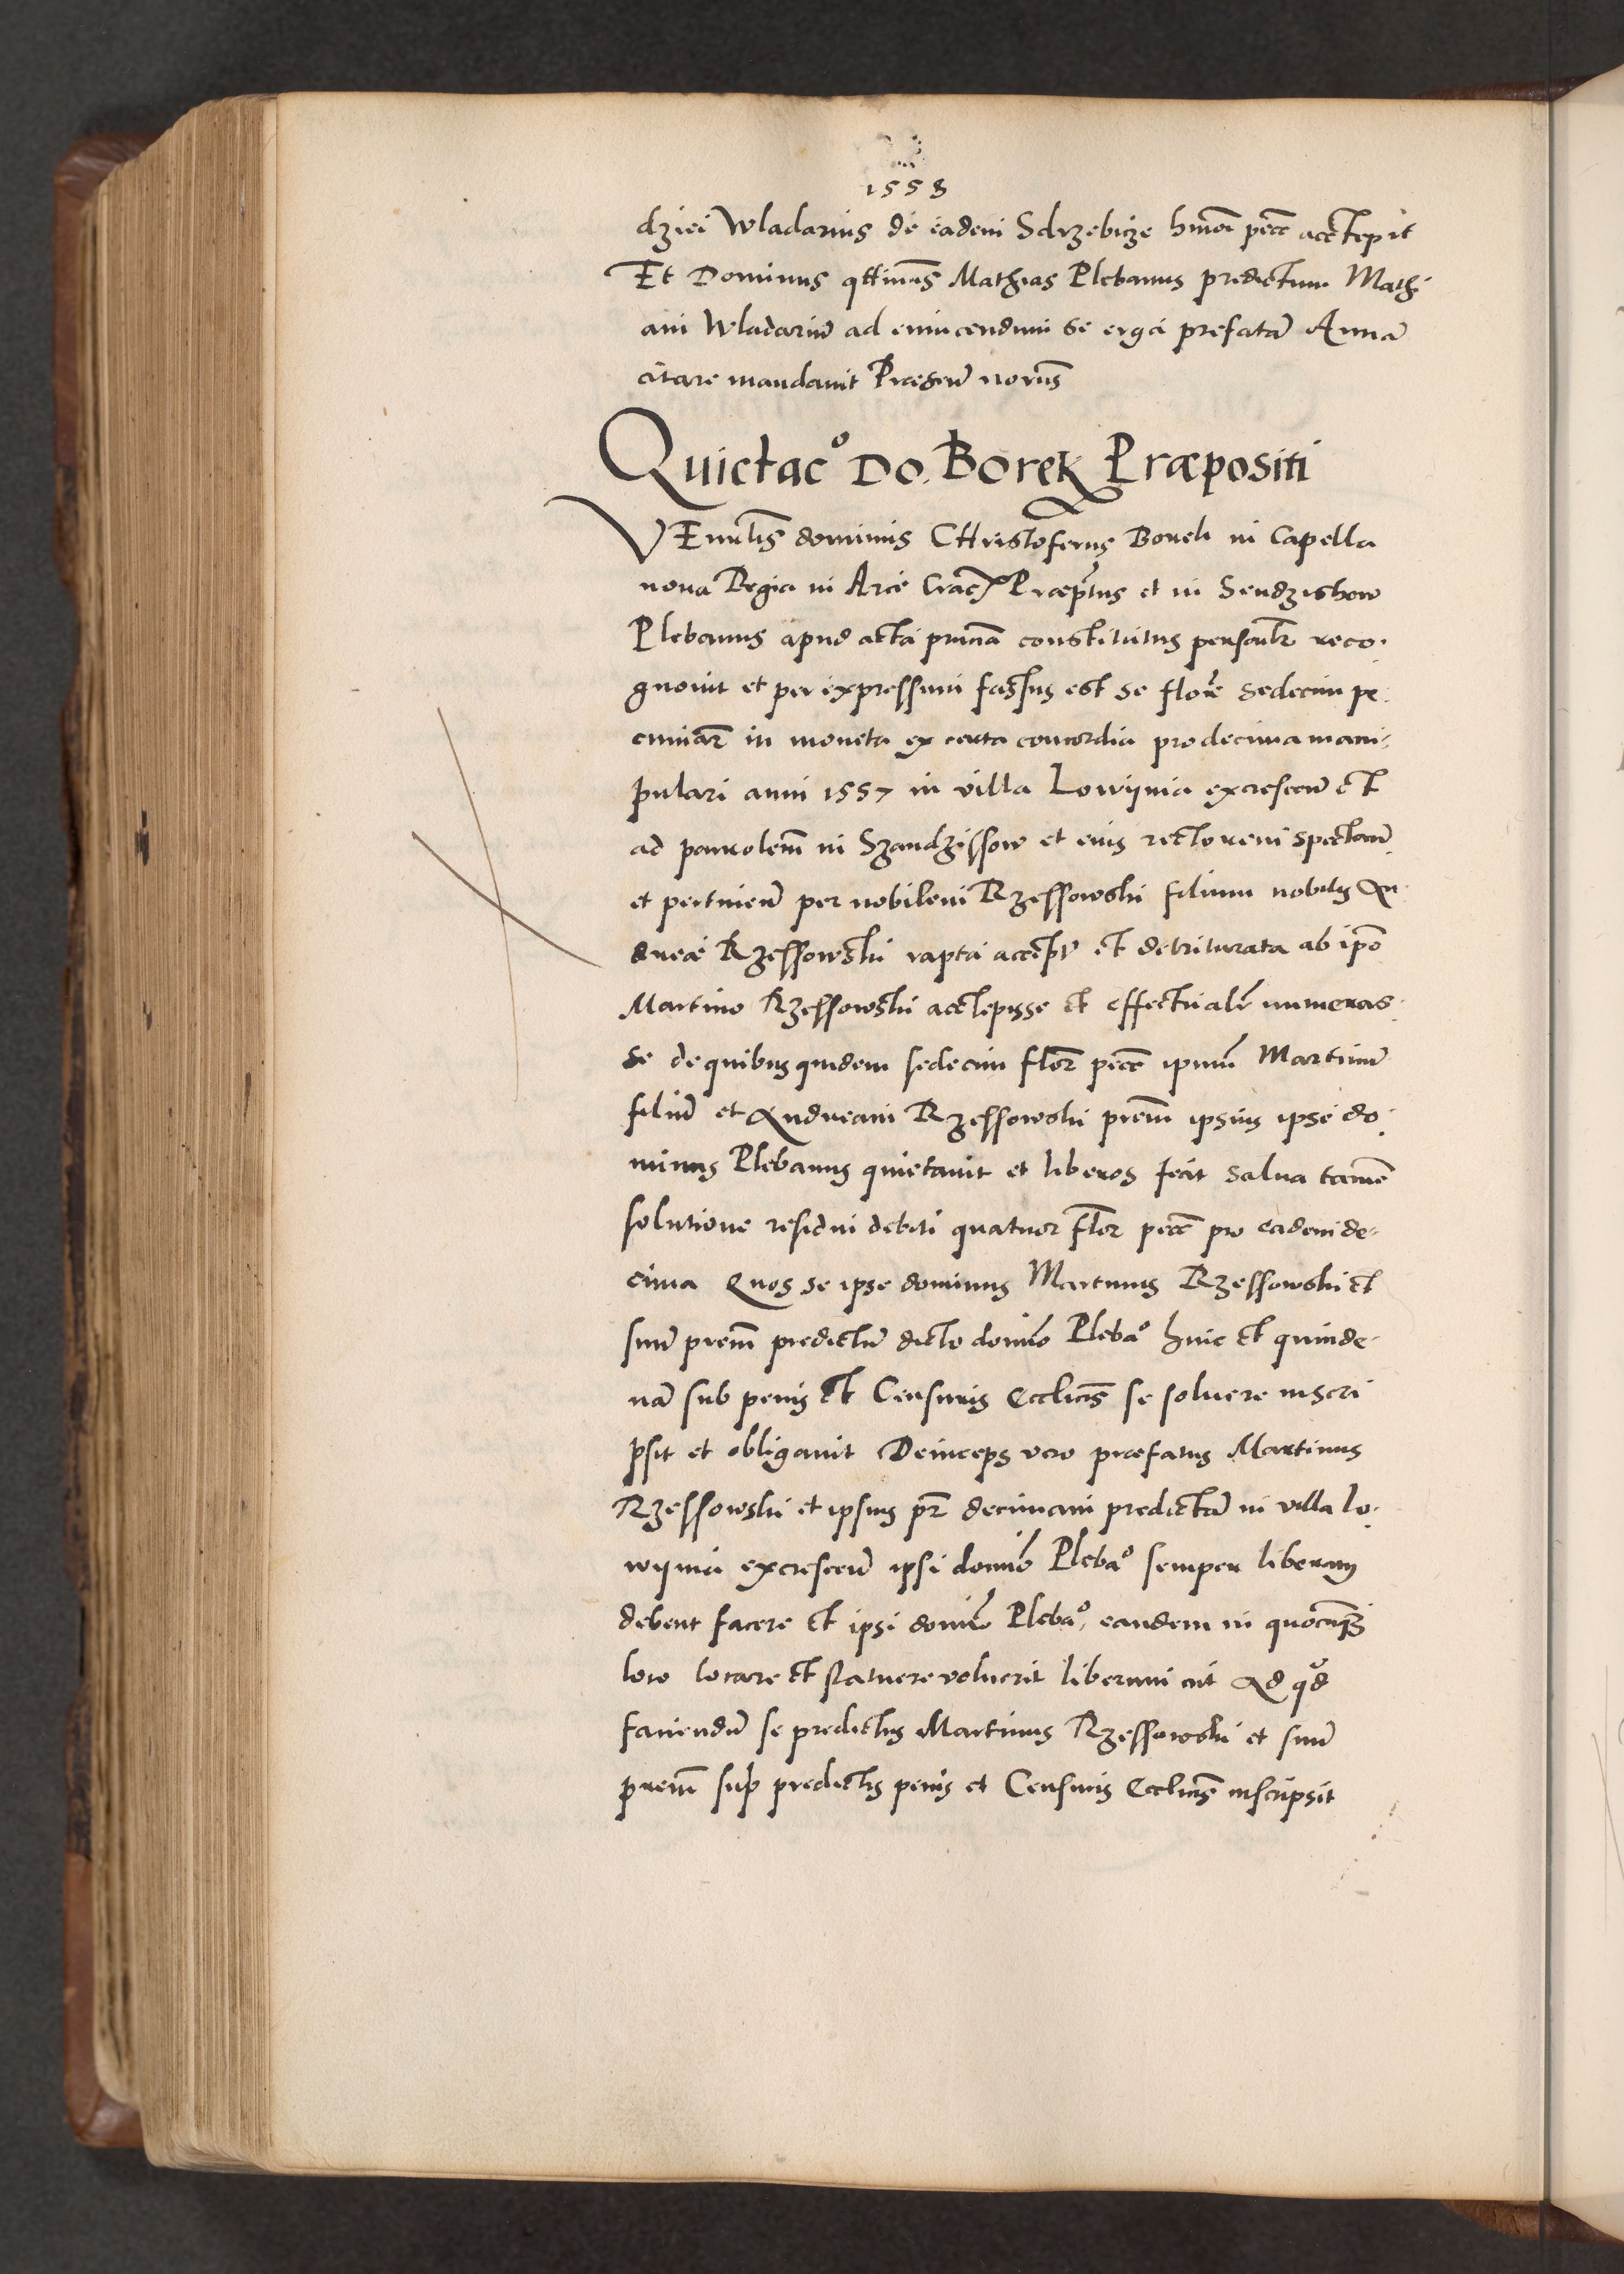 1558
dziei Wladarius de eadem Sdrzebicze hmōi pecc̄ accepit
Et Dominus Mathias Plebanus predictum Math
am Wladariū ad evincendum se erga prefatā Annā
citare mandavit Presen̄
Quietac° Do. Borek Præpositi
VEnrlis dominus CHristoferus Borek in Capella
nova Regia in Arce Crac̄ Præp̄tus et in Sendzishow
Plebanus apud acta pn̄cia constitutus personl̄r reco
gnovit et per expressum fassus est se flor̄e sedecim pe
cuniar̄ in moneta ex certa concordia pro decima mani-
pulari anni 1557 in villa Lowynia excrescen̄ et
ad parrolem̄ in Szandzissow et eius rectorem spectan̄
et pertinen̄ per nobilem Rzessowski filium nobilis An
dreæ Rzessowski rapta accept et detriturata ab ip̄o
Martino Rzessowski accepisse et effectualr̄ numeras
se de quibus quidem sedecim flor̄ pecc̄ ipsum̄ Martinū
filiū et Andream Rzessowski prem̄ ipsius ipse do
minus Plebanus quietavit et liberos fecit salva tamē
solutione residui debiti quatuor flor̄ pecc̄ pro eadem de-
cima Quos se ipse dominus Martinus Rzessowski et
suū prem̄ predictū dicto domīo Pleba° hinc et quinde-
nā sub penis et Censuris Eccl̄icis se solvere inscri
psit et obligavit Deinceps vero præfatus Martinus
Rzessowski et ipsius pr̄ decimam predictā in villa lo
wynia excrescen̄ ipsi domīo Pleba° semper liberam
debent facere et ipsi domīo Pleba° eandem in quocunq3
loco locare et statuere voluerit liberum erit Ad qd̄
faciendū se predictus Martinus Rzessowski et suū
prem̄ sub predictis penis et Censuris Eccl̄icis inscripsit